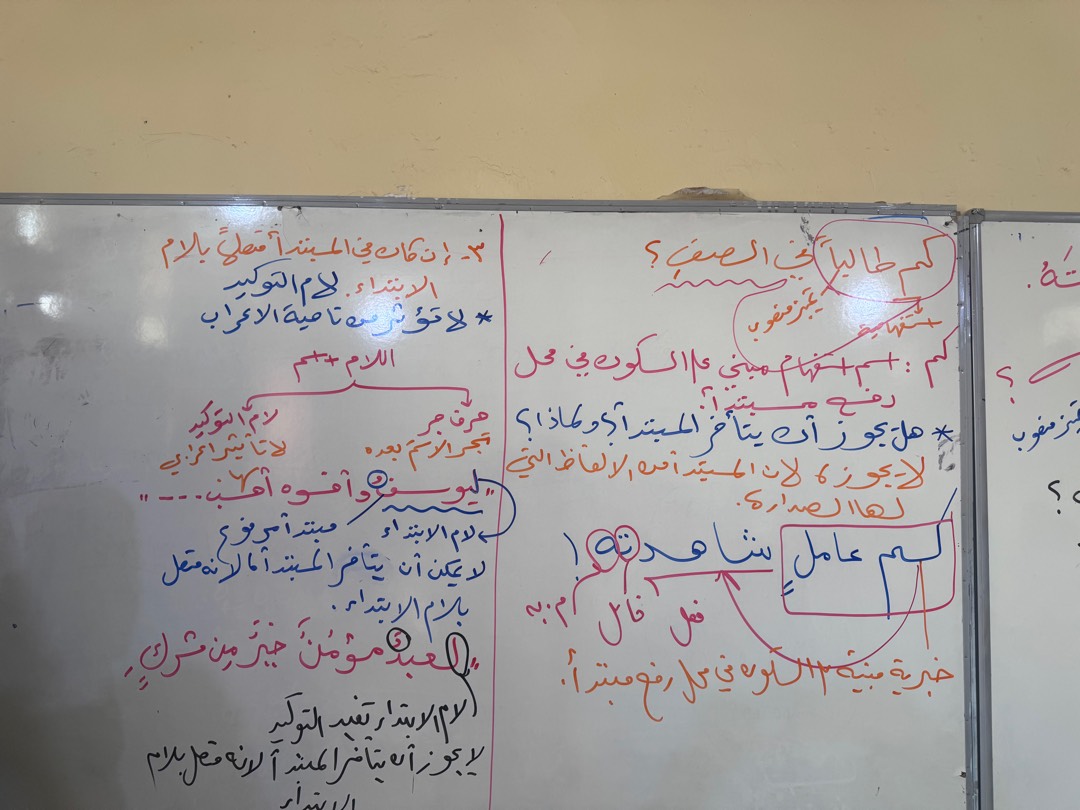 كم طالباً في الصف؟
استفهامية
تمييز منصوب
كم : اسم استفهام مبني على السكون في محل
رفع مبتدأ.
* هل يجوز أن يتأخر المبتدأ؟ ولماذا؟
لا يجوز، لان المبتدأ من الالفاظ التي
لها الصدارة.
كم عاملٍ شاهدته!
فعل فاعل م. به
خبرية مبنية على السكون في محل رفع مبتدأ.
٣- إن كان في المبتدأ متصلاً بلام
الابتداء. لام التوكيد
* لا تؤثر من ناحية الاعراب
اللام + اسم
حرف جر
تجر الاسم بعده
لام التوكيد
لا تأثير اعرابي لها
"ليوسفُ وأخوه أحب ---"
لام الابتداء
مبتدأ مرفوع
لا يمكن أن يتأخر المبتدأ لانه متصل
بلام الابتداء.
"لعبدٌ مؤمنٌ خيرٌ من مشركٍ"
لام الابتداء تفيد التوكيد
لا يجوز أن يتأخر المبتدأ لانه متصل بلام
الابتداء
تمييز منصوب